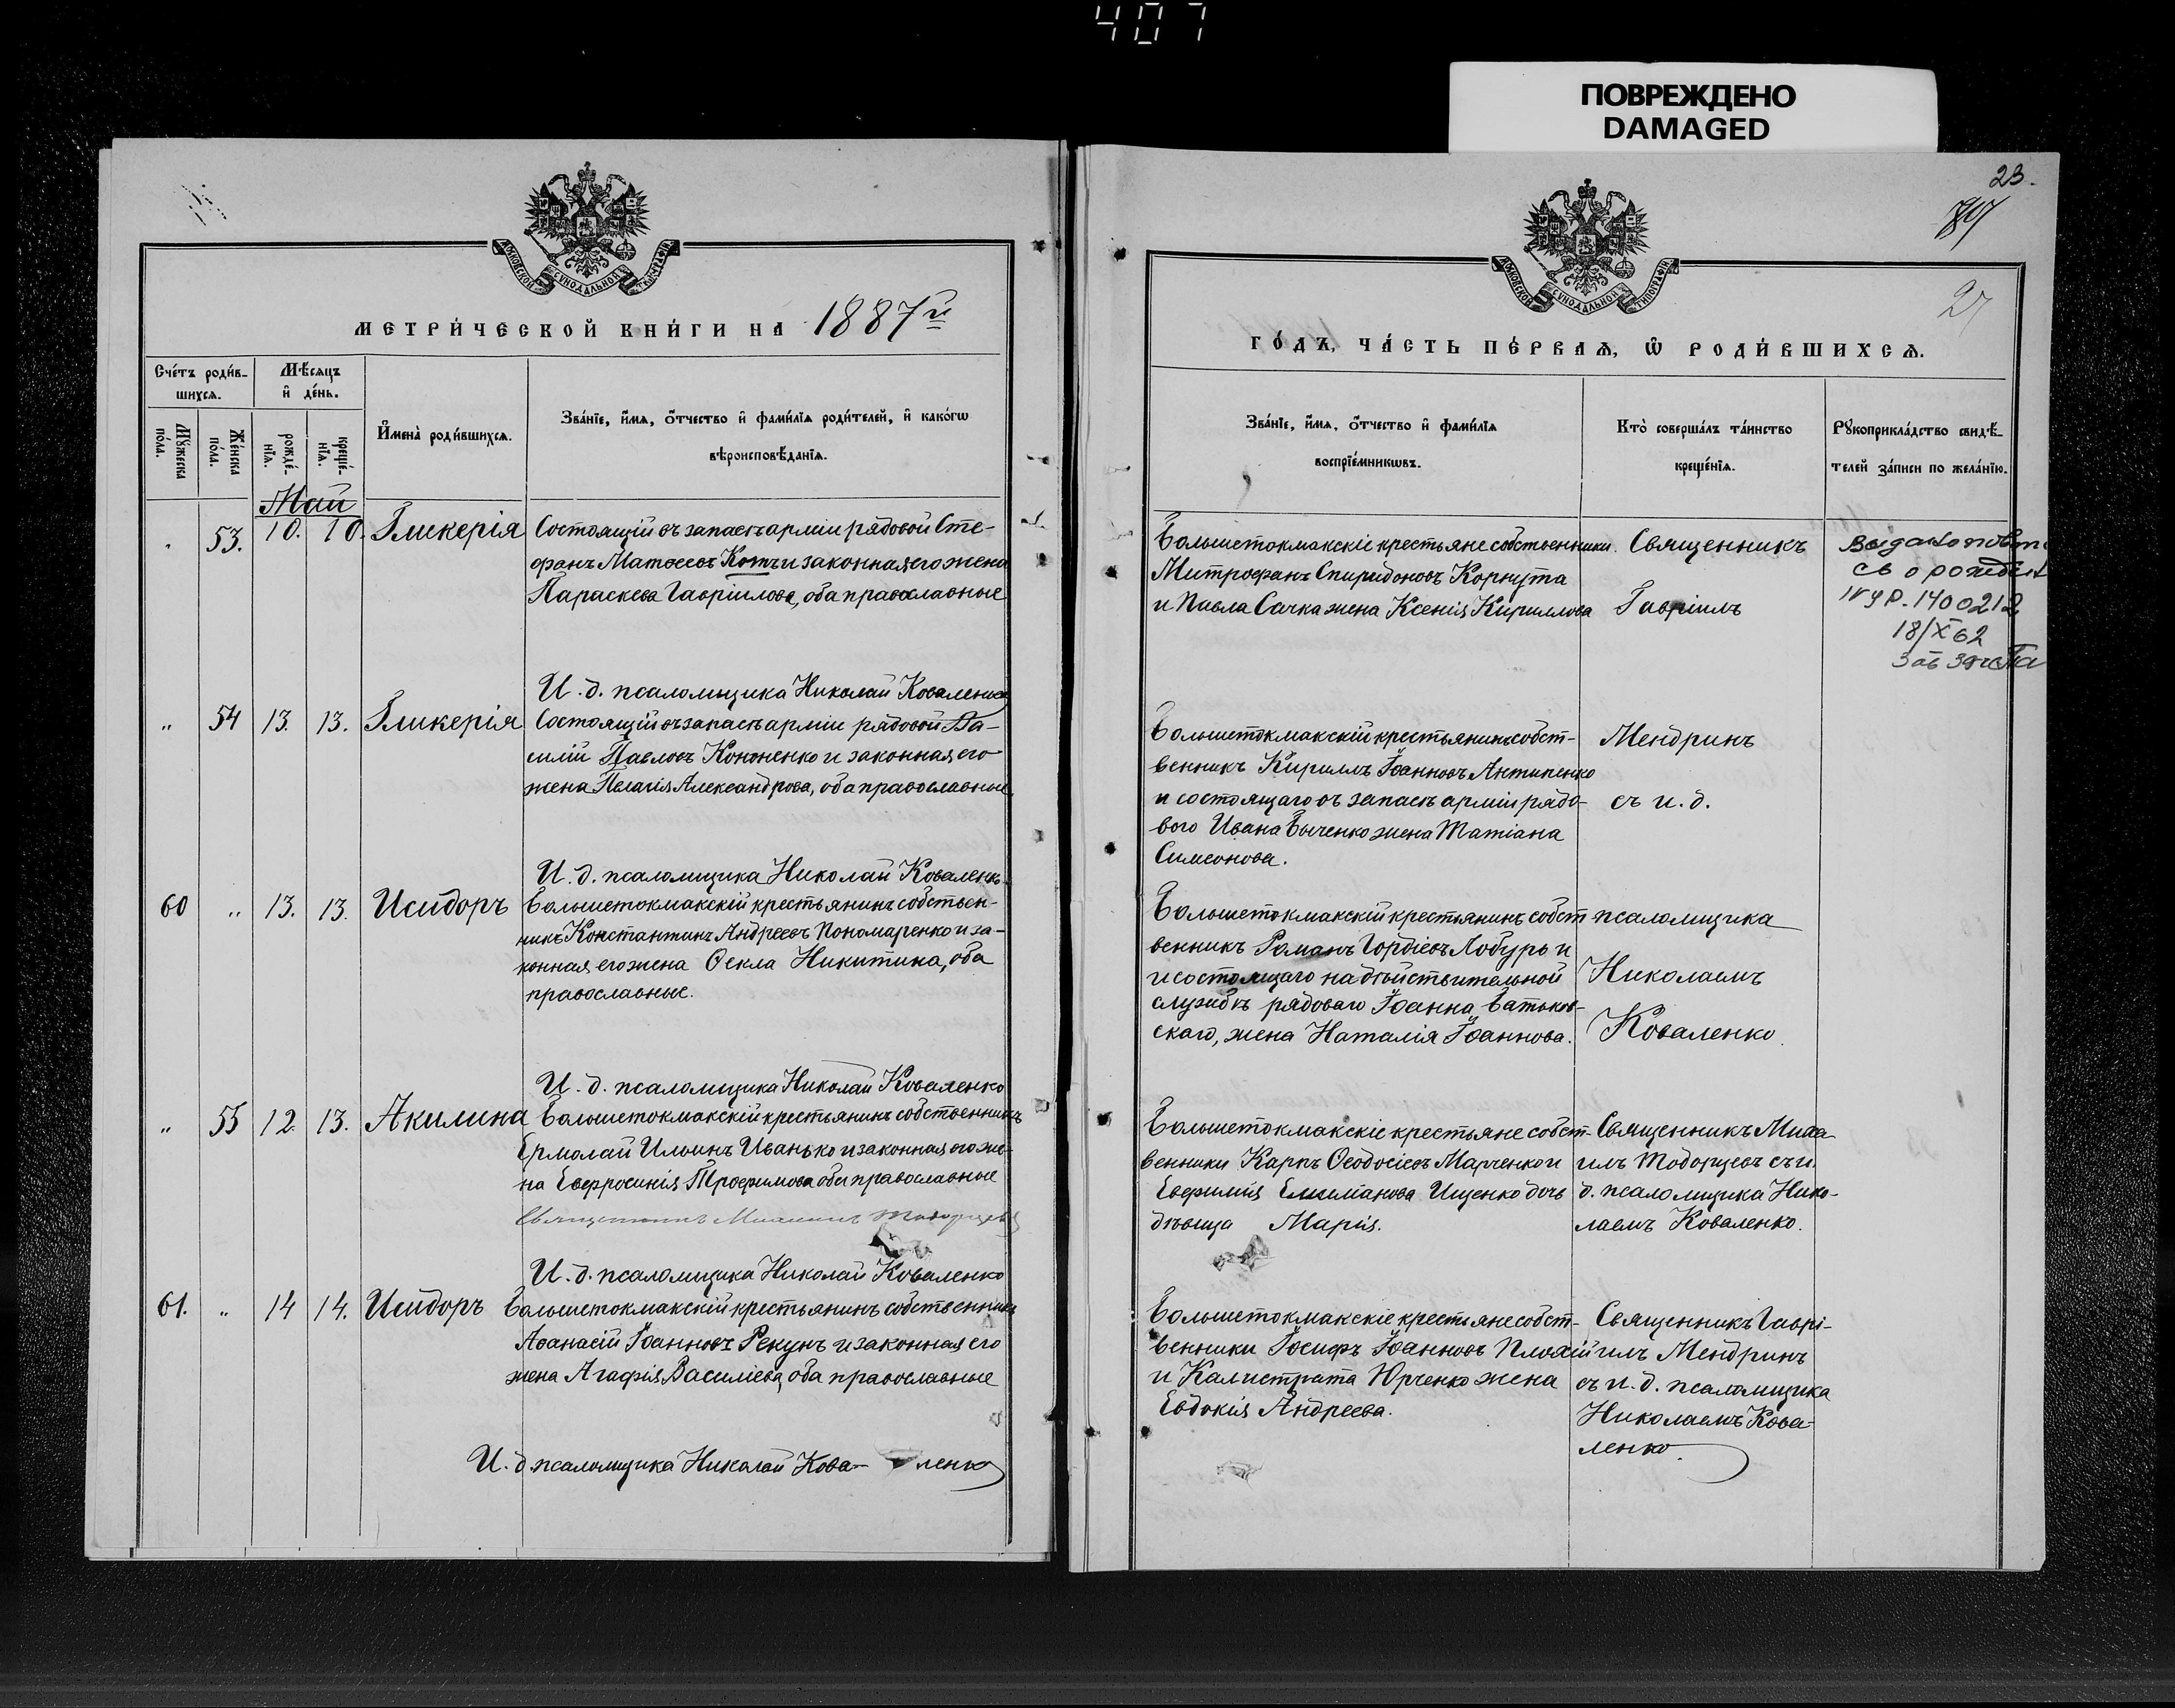 407
ПОВРЕЖДЕНО
DAMAGED
МОСКОВСКОЙ СѴНОДАЛЬНОЙ ТИПОГРАФІИ
МЕТРИ́ЧЕСКОЙ КНИ́ГИ НА 1887й
Сче́тъ роди́в-
шихся.
Мѣ́сяцъ
и҆ де́нь.
Мꙋ́жеска
по́ла.
Же́нска
по́ла.
рожде́-
нїя.
креще́-
нїя.
И҆мена̀ роди́вшихся.
Зва́нїе, и҆́мя, ѻ҆́тчество и҆ фами́лїя роди́телей, и҆ како́гѡ
вѣроисповѣ́данїя.
Май
" 53. 10. 10. Гликерія
Состоящій въ запасѣ арміи рядовой Сте-
фанъ Матѳеевъ Котъ и законная его жена
Параскева Гавріилова, оба православные
И. д. псаломщика Николай Коваленко
" 54 13. 13. Гликерія
Состоящій въ запасѣ арміи рядовой Ва-
силій Павловъ Кононенко и законная его
жена Пелагія Александрова, оба православные
И. д. псаломщика Николай Коваленко
60 " 13. 13. Исидоръ
Большетокмакскій крестьянинъ собствен-
никъ Константинъ Андреевъ Пономаренко и за-
конная его жена Ѳекла Никитина, оба
православные.
И. д. псаломщика Николай Коваленко
" 55 12. 13. Акилина
Большетокмакскій крестьянинъ собственникъ
Ермолай Ильинъ Иванько и законная его же-
на Евфросинія Трофимова оба православные
Священникъ Михаилъ Тодорцевъ
И. д. псаломщика Николай Коваленко
61. " 14 14. Исидоръ
Большетокмакскій крестьянинъ собственникъ
Аѳанасій Іоанновъ Рекунъ и законная его
жена Агафія Василіева, оба православные
И. д. псаломщика Николай Кова- ленко
23.
27
МОСКОВСКОЙ СѴНОДАЛЬНОЙ ТИПОГРАФІИ
ГО́ДЪ, ЧА́СТЬ ПЕ́РВАЯ, Ѡ҆ РОДИ́ВШИХСЯ.
Зва́нїе, и҆́мя, ѻ҆́тчество и҆ фами́лїя
воспрїе́мникѡвъ.
Кто̀ соверша́лъ та́инство
креще́нїя.
Рꙋкоприкла́дство свидѣ́-
телей за́писи по жела́нїю.
Большетокмакскіе крестьяне собственники
Митрофанъ Спиридоновъ Корнута
и Павла Сачка жена Ксенія Кириллова
Священникъ
Гавріилъ
Выдано повт.
св о рожден
IV УР. 1400212
18/X 62
Заб загста
Большетокмакскій крестьянинъ собст-
венникъ Кириллъ Іоанновъ Антипенко
и состоящаго въ запасѣ арміи рядо-
вого Ивана Быченко жена Татіана
Симеонова.
Мендринъ
съ и. д.
Большетокмакскій крестьянинъ собст-
венникъ Романъ Гордіевъ Лобуръ и
и состоящаго на дѣйствительной
службѣ рядоваго Іоанна Батьков-
скаго, жена Наталія Іоаннова.
псаломщика
Николаемъ
Коваленко.
Большетокмакскіе крестьяне собст-
венники Карпъ Ѳеодосіевъ Марченко и
Евфимія Ищенко дочь
дѣвица Марія.
Священникъ Миха-
илъ Тодорцевъ съ и.
д. псаломщика Нико-
лаемъ Коваленко.
Большетокмакскіе крестьяне собст-
венники Іосифъ Іоанновъ Плохій
и Калистрата Юрченко жена
Евдокія Андреева.
Священникъ Гаврі-
илъ Мендринъ
съ и. д. псаломщика
Николаемъ Кова-
ленко.